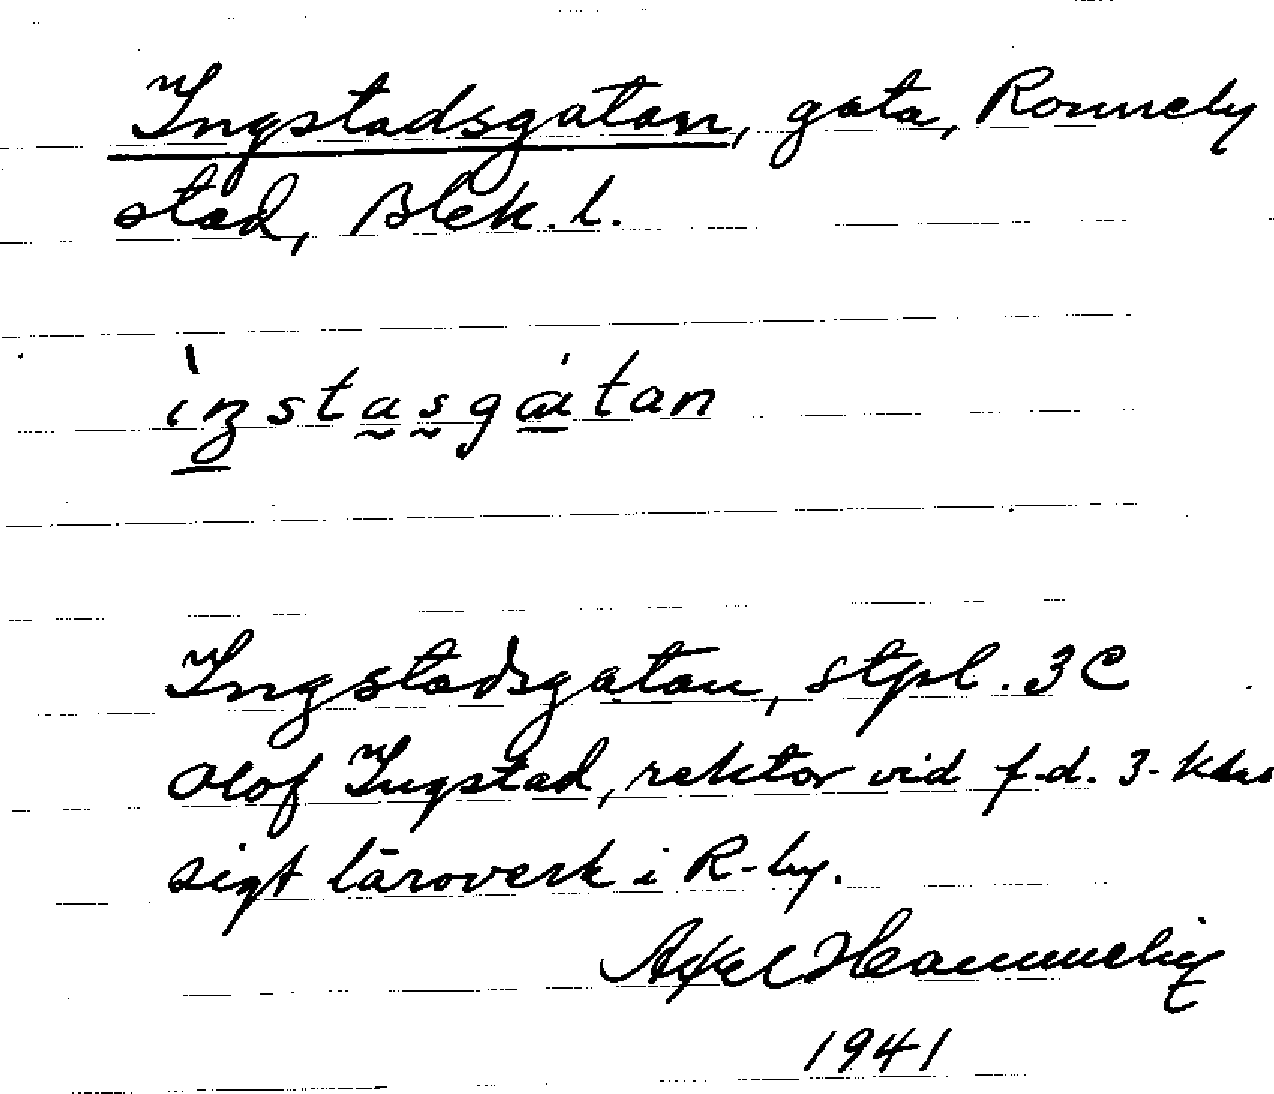 Ingstadsgatan, gata, Ronneby
stad, Blek. l.
ìŋstasgátan
Ingstadsgatan, stpl. 3C
Olof Ingstad, rektor vid f.d. 3-klas
sigt läroverk i R-by.
Axel
1941